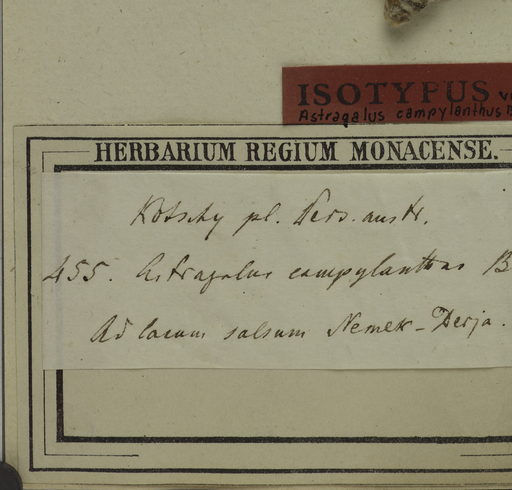 ISOTYPUS
Astragalus campylanthus B
HERBARIUM REGIUM MONACENSE.
Kotschy pl. Pers. austr.
455. Astragalus campylanthus B
Ad lacum salsum Nemek-Derja.